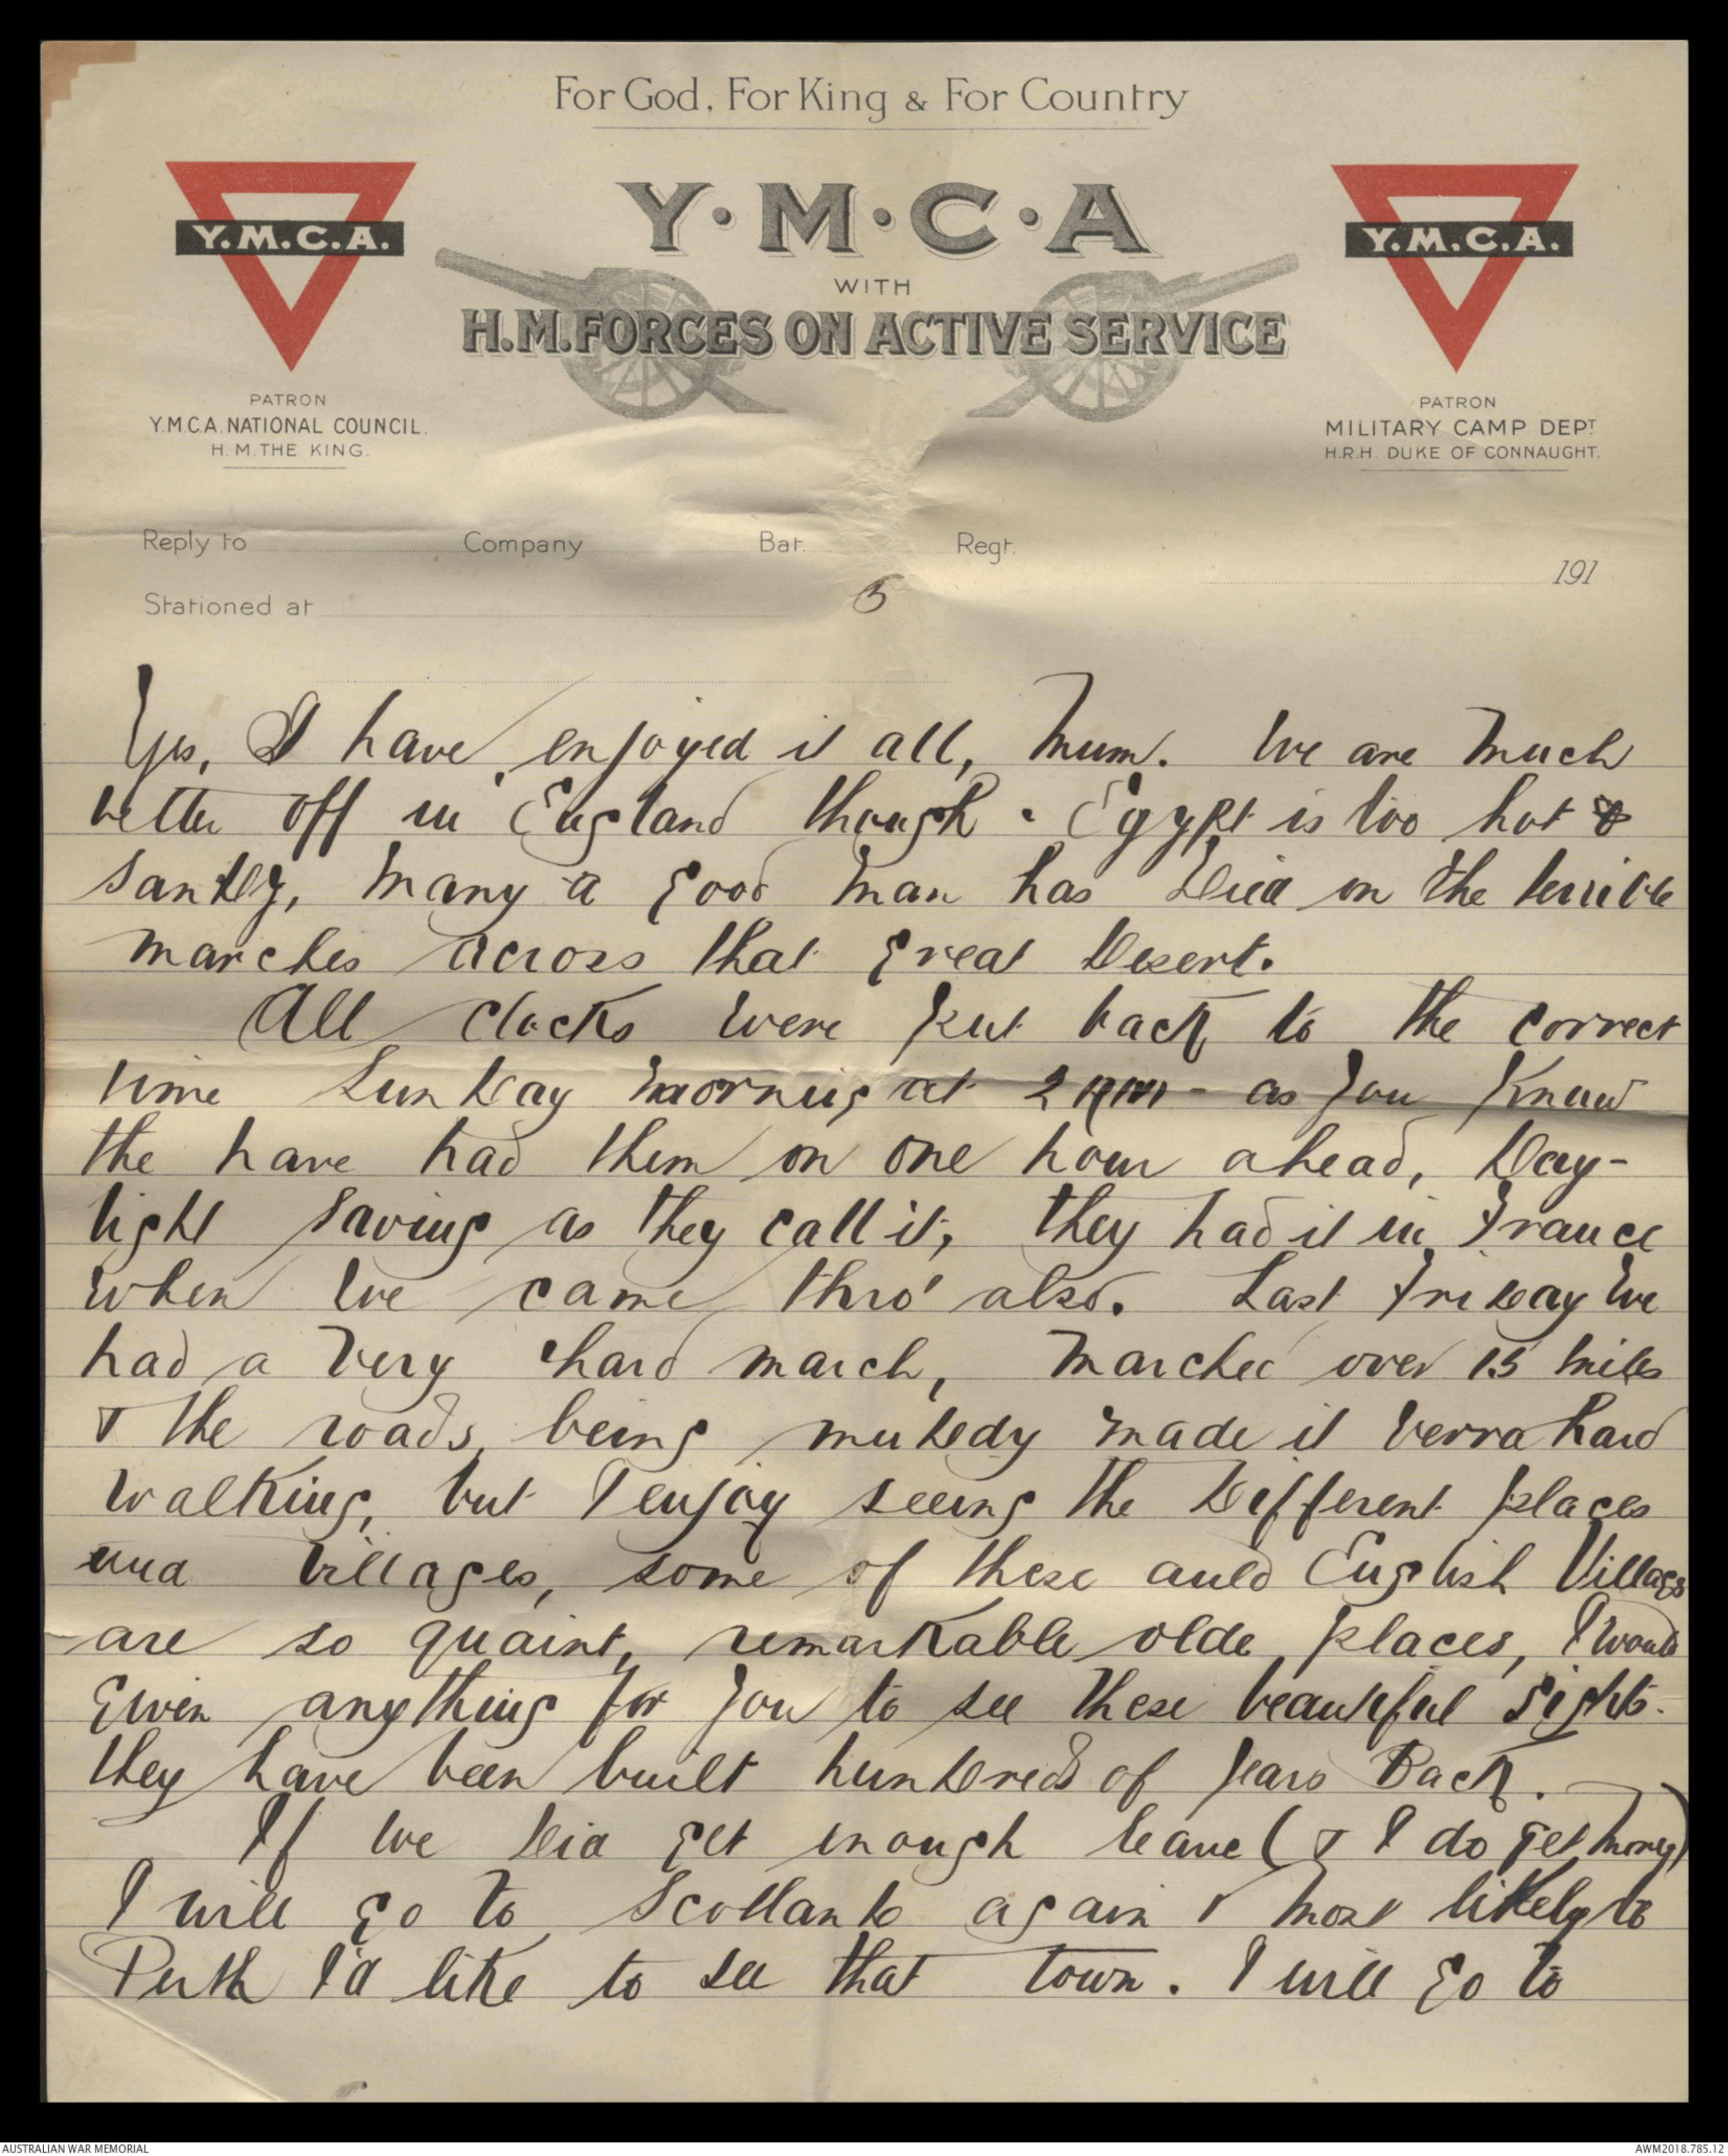 For God, For King & For Country
Y·M·C·A
WITH
H.M. FORCES ON ACTIVE SERVICE
Y.M.C.A.
PATRON
Y.M.C.A. NATIONAL COUNCIL.
H.M. THE KING.
Y.M.C.A.
PATRON
MILITARY CAMP DEPT
H.R.H. DUKE OF CONNAUGHT.
Reply to Company Bat. Regt.
191
Stationed at
5
Yes, I have enjoyed it all, Mum. We are much
better off in England though. Egypt is too hot &
sandy, many a good man has died on the terrible
marches across that great Desert.
All clocks were put back to the correct
time Sunday morning at 2 AM - as you know
the have had them on one hour ahead, Day-
light saving as they call it, they had it in France
when we came thro' also. Last Friday we
had a very hard march, marched over 15 miles
& the roads being muddy made it verra hard
walking, but I enjoy seeing the different places
and villages, some of these auld English Villages
are so quaint, remarkable olde places, I would
given anything for you to see these beautiful sights.
they have been built hundreds of years Back.
If we did get enough leave (& I do get money)
I will go to Scotland again & most likely to
Perth I'd like to see that town. I will go to
AUSTRALIAN WAR MEMORIAL
AWM2018.785.12